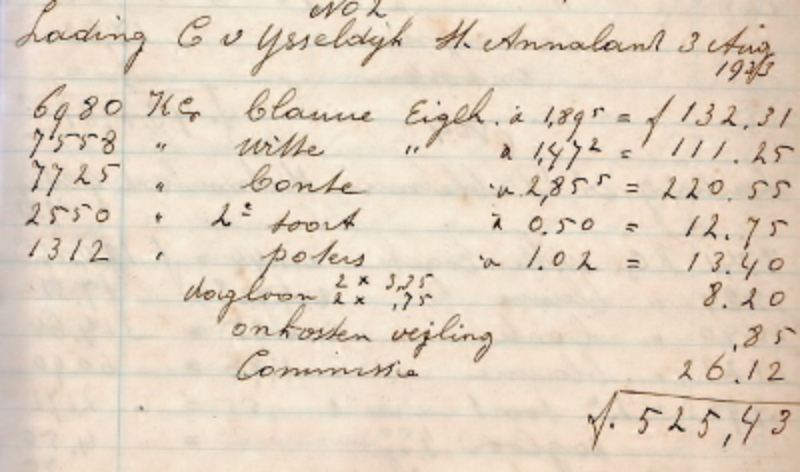 No 2
Lading C v Ysseldijk St. Annaland 3 Aug
1933
6980 KG blauwe Eigh. à 1,89⁵ = f 132.31
7558 " witte " à 1,47² = 111.25
7725 " bonte à 2,85⁵ = 220.55
2550 " 2e soort à 0.50 = 12.75
1312 " poters à 1.02 = 13.40
dagloon 2 x 3,35
2 x ,75 8.20
onkosten veiling ,85
Commissie 26.12
f. 525,43